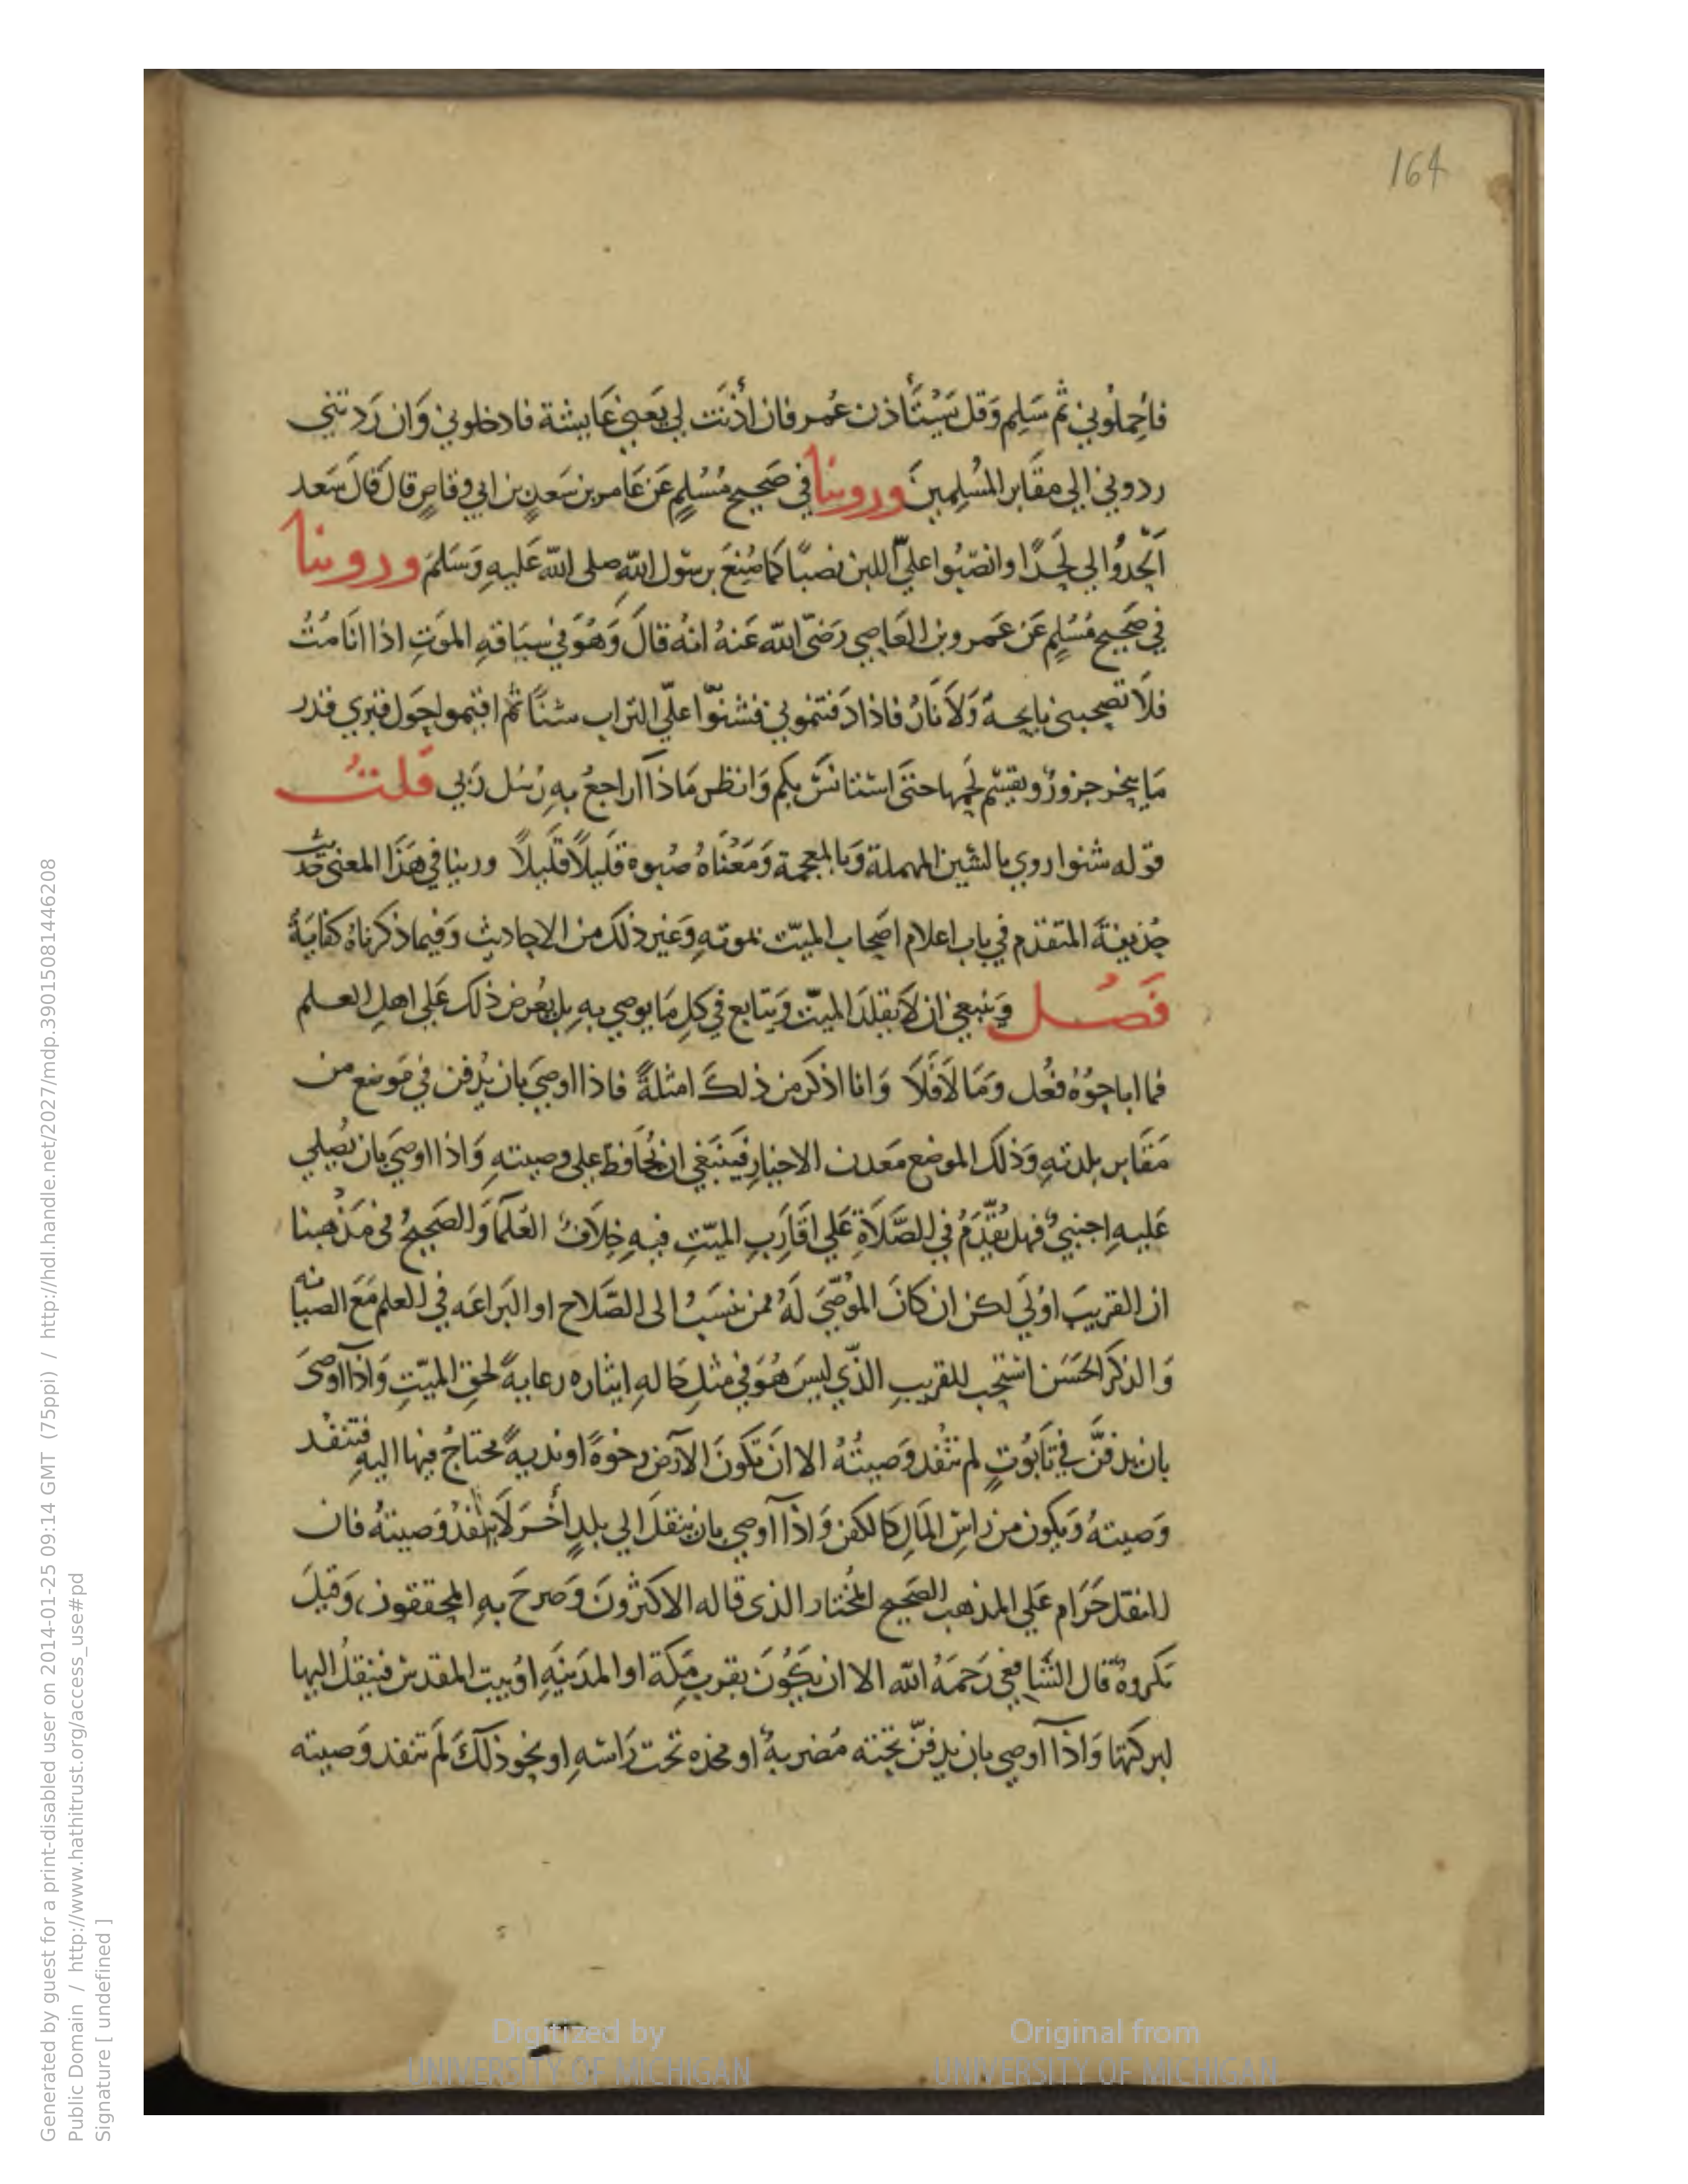 164
فاحِملُوني ثم سَلِم وَقل يَسْتَأذن عُمر فان اذنَت لي يَعني عَايشة فادخلوني وَان رَدتني
ردوني الي مقَابر المُسلِمينَ وروينا في صَحيح مُسْلِم عَن عَامر بن سَعدِ بن ابي وقاصٍ قال قالَ سَعد
اَلحِدُوا لي لَحدًا وانصِبُوا عليّ اللبن نصبًا كما صُنِعَ برسَول اللهِ صلى الله عَليهِ وَسَلمَ وروينا
في صَحيح مُسْلِم عَن عَمرو بن العَاصِي رَضيَ الله عَنهُ انهُ قالَ وَهُوَ في سِيَاقهِ الموَتِ اذا انَا مُتُ
فلَا تصحبني نايحةٌ وَلَا نَارٌ فاذا دَفنتموني فشنوّا عليّ التراب شنًا ثم اقيموا حَول قبري قدر
مَا ينحر جزورٌ ويقسَم لَحمها حتى استانسَ بكم وَانظر مَاذا اراجعُ بهِ رُسُل رَبي قلتُ
قوله شنوا روي بالسَين المهملة وَبالمعجمة وَمَعْناهُ صُبوه قَليلاً قَليلاً وروينا في هَذا المعنى حَديث
حُذيفةَ المتقدم في باب اعلام اصَحاب الميّت بموتهِ وَغير ذلك من الاحاديث وَفيما ذكرناهُ كفايَةٌ
فَصْل وَينبغي ان لَا يقلدَ الميّت وَيتابع في كلِ مَا يوصي بهِ بل يُعرض ذلك عَلي اهلِ العلم
فما اباحُوُه فعُل وَمَا لَا فَلَا وَانا اذكر من ذلكَ امثلةً فاذا اوصَي بان يُدفن في مَوضع من
مَقَابر بلدتهِ وَذلك الموضع مَعدن الاخيار فيَنبَغي ان يُحَافظ علي وصيتهِ وَاذا اوصَي بان يُصلي
عَليهِ اجنبيٌ فهل يُقّدَمُ في الصَّلَاةِ عَلي اقَارَبِ الميّتِ فيهِ خِلَافٌ العُلمآ وَالصَحيحُ في مَذهبنا
ان القريبَ اوْلَي لكن ان كانَ الموُصَي لَهُ ممن ينسَبُ الى الصَّلاح او البَراعَه في العلم مَعَ الصيانه
وَالذكر الحَسَن استحِب للقريبِ الذّي ليسَ هُوَ في مثلِ حَالهِ ايثاره رعايةً لحقِ الميّتِ وَاذا اوصَى
بان يدفنَّ في تَابُوتٍ لم تنْفُد وَصيتُهُ الا ان تَكونَ الاَرض رخوَةً اوندِيةً محتاجُ فيها اليهِ فتنفذ
وَصيتهُ وَيكون من رَاسِ المَالِ كَالكفن وَاذا اوصي بان ينقلَ الي بلدٍ اخَر لَا ينفذْ وَصيتهُ فان
النقل حَرَام عَلي المذهب الصَحيح المُختار الذى قاله الاكثرُونَ وَصرحَ بهِ المحققون، وَقيلَ
مَكروهٌ قال الشَافعي رَحمَهُ الله الا ان يكُونَ بقرب مَكة او المدَينهِ اوْبيت المقدس فينقلُ اليها
لبركتها وَاذا اوصي بان يدفنّ تحته مُضربةٌ او مخذه تحت رَاسَهِ او نحو ذلكَ لَم تنفذ وَصيته
Digitized by
UNIVERSITY OF MICHIGAN
Original from
UNIVERSITY OF MICHIGAN
Generated by guest for a print-disabled user on 2014-01-25 09:14 GMT (75ppi) / http://hdl.handle.net/2027/mdp.39015081446208
Public Domain / http://www.hathitrust.org/access_use#pd
Signature [ undefined ]